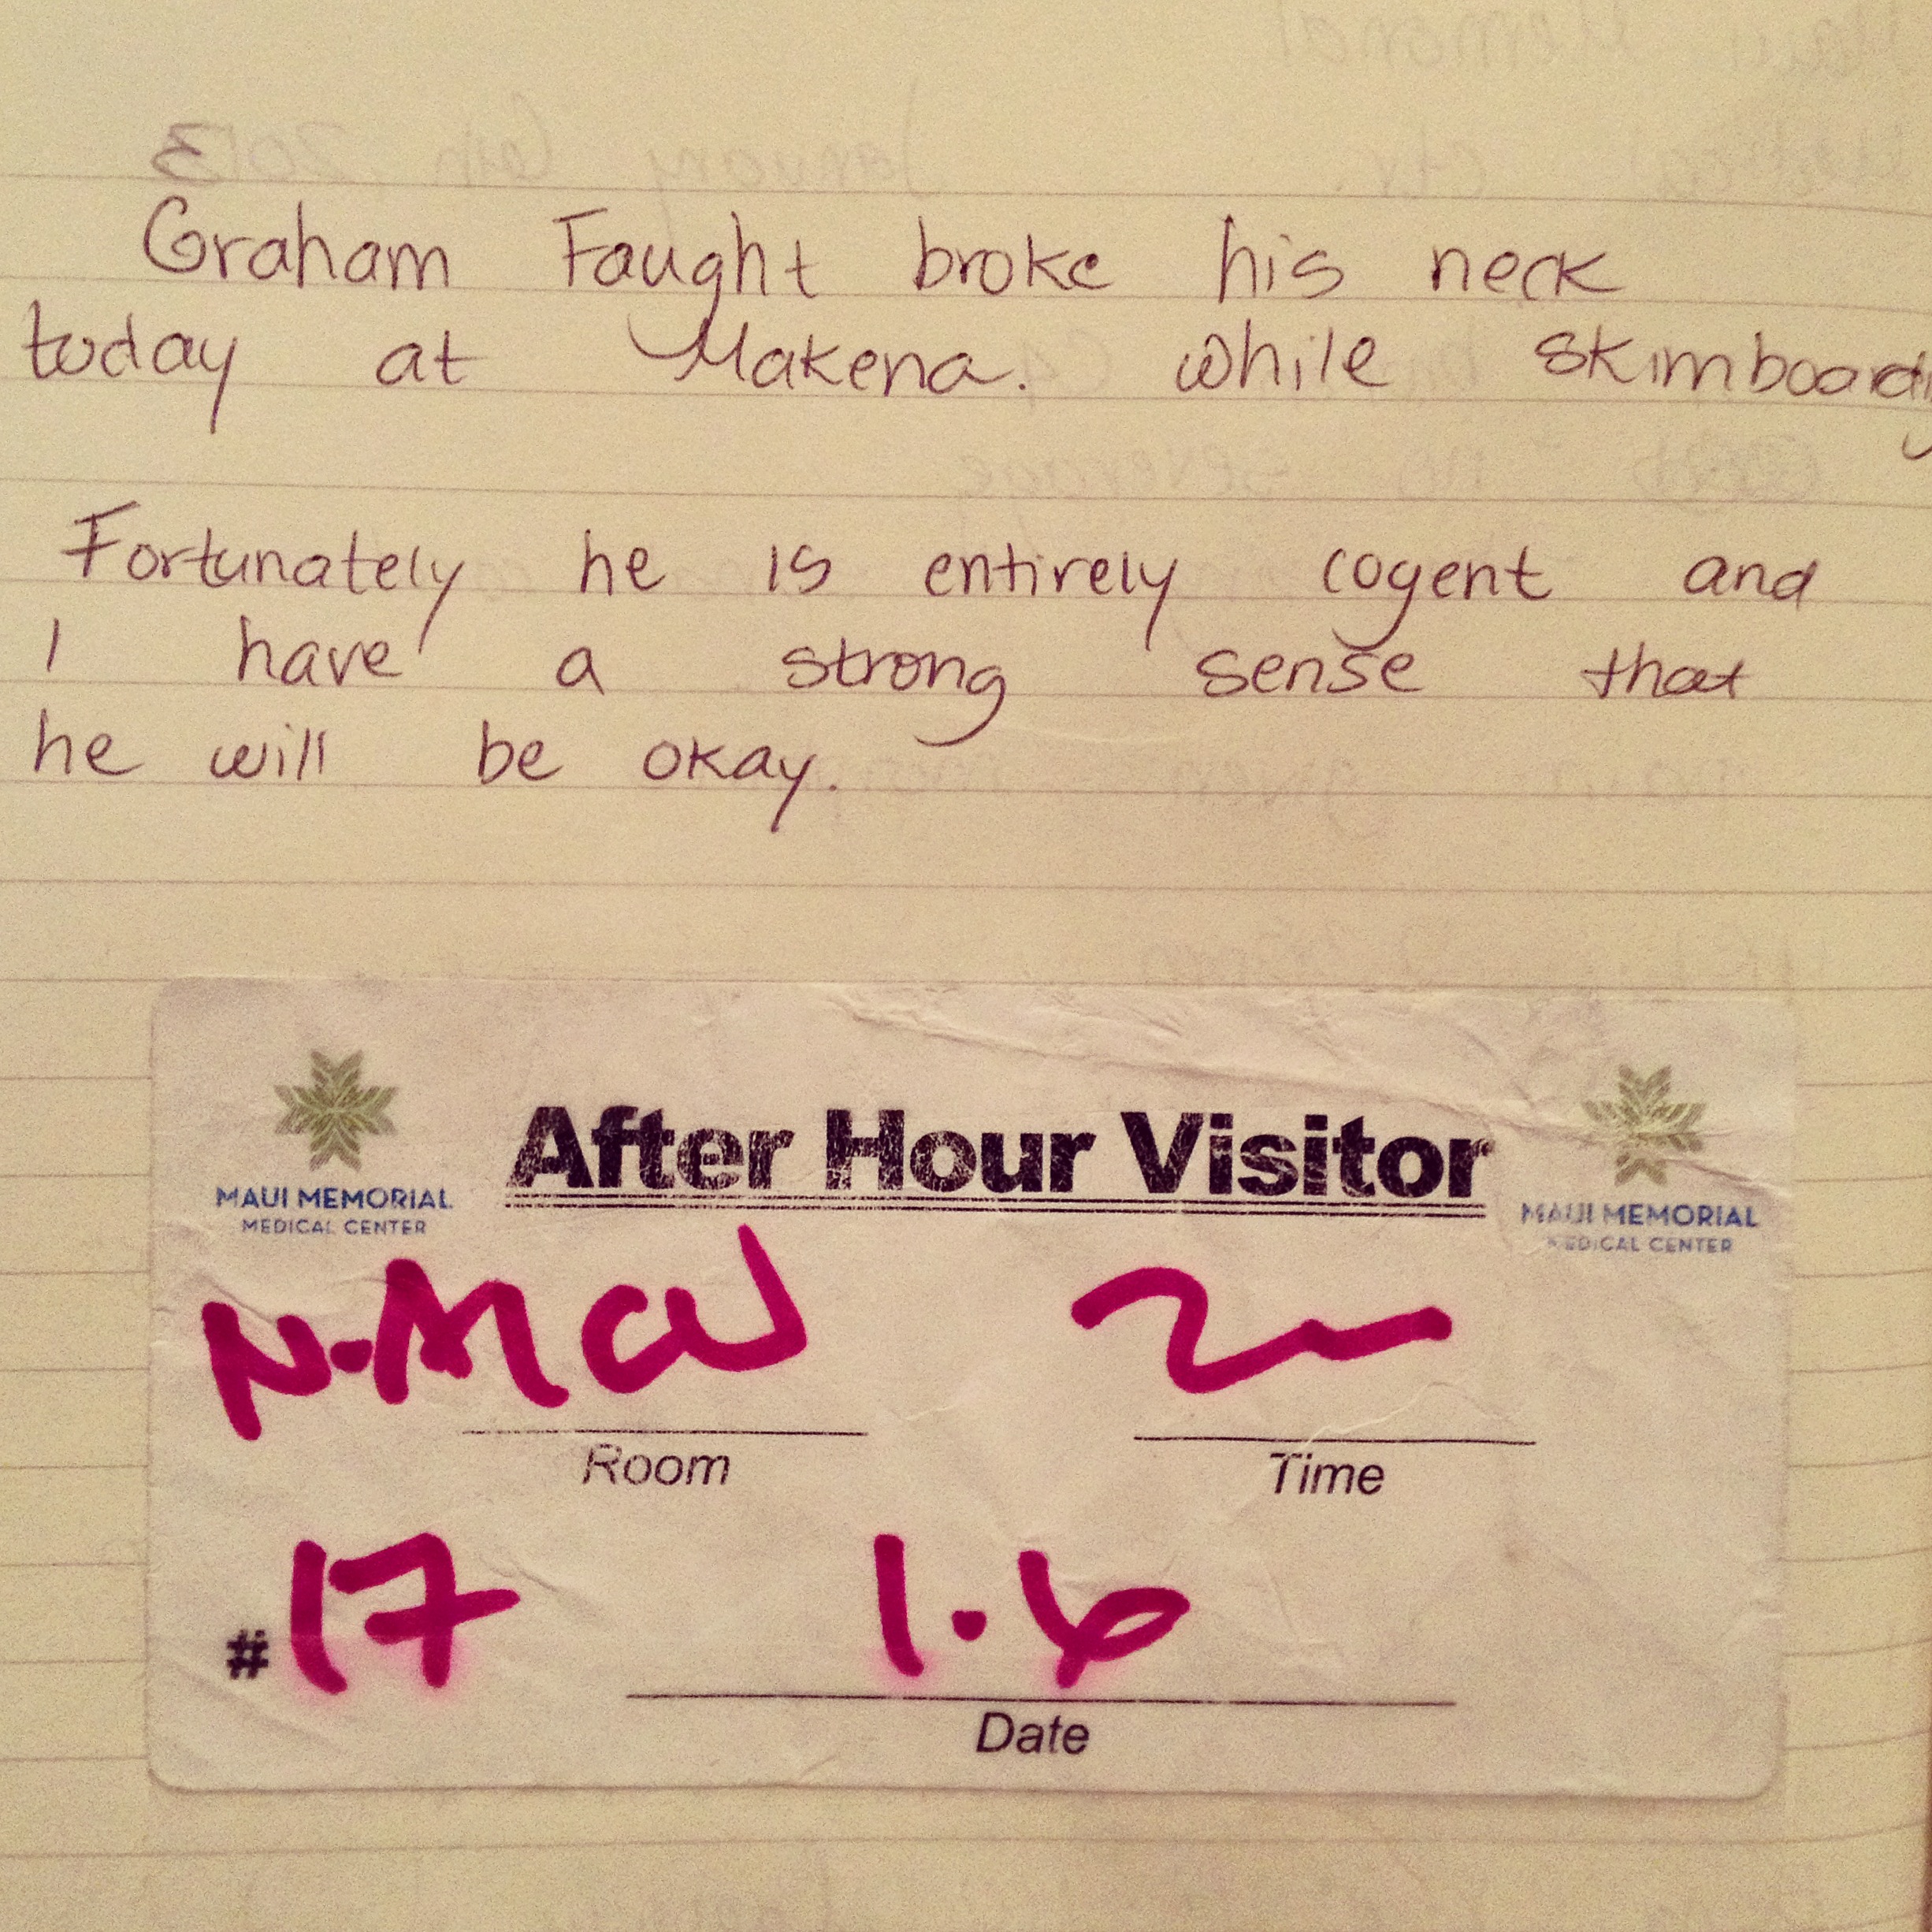 Graham Faught broke his neck
today at Makena. while skimboarding
Fortunately he is entirely cogent and
I have a strong sense that
he will be okay.
After Hour Visitor
MAUI MEMORIAL
MEDICAL CENTER
MAUI MEMORIAL
MEDICAL CENTER
Room
Time
# 17
1.6
Date